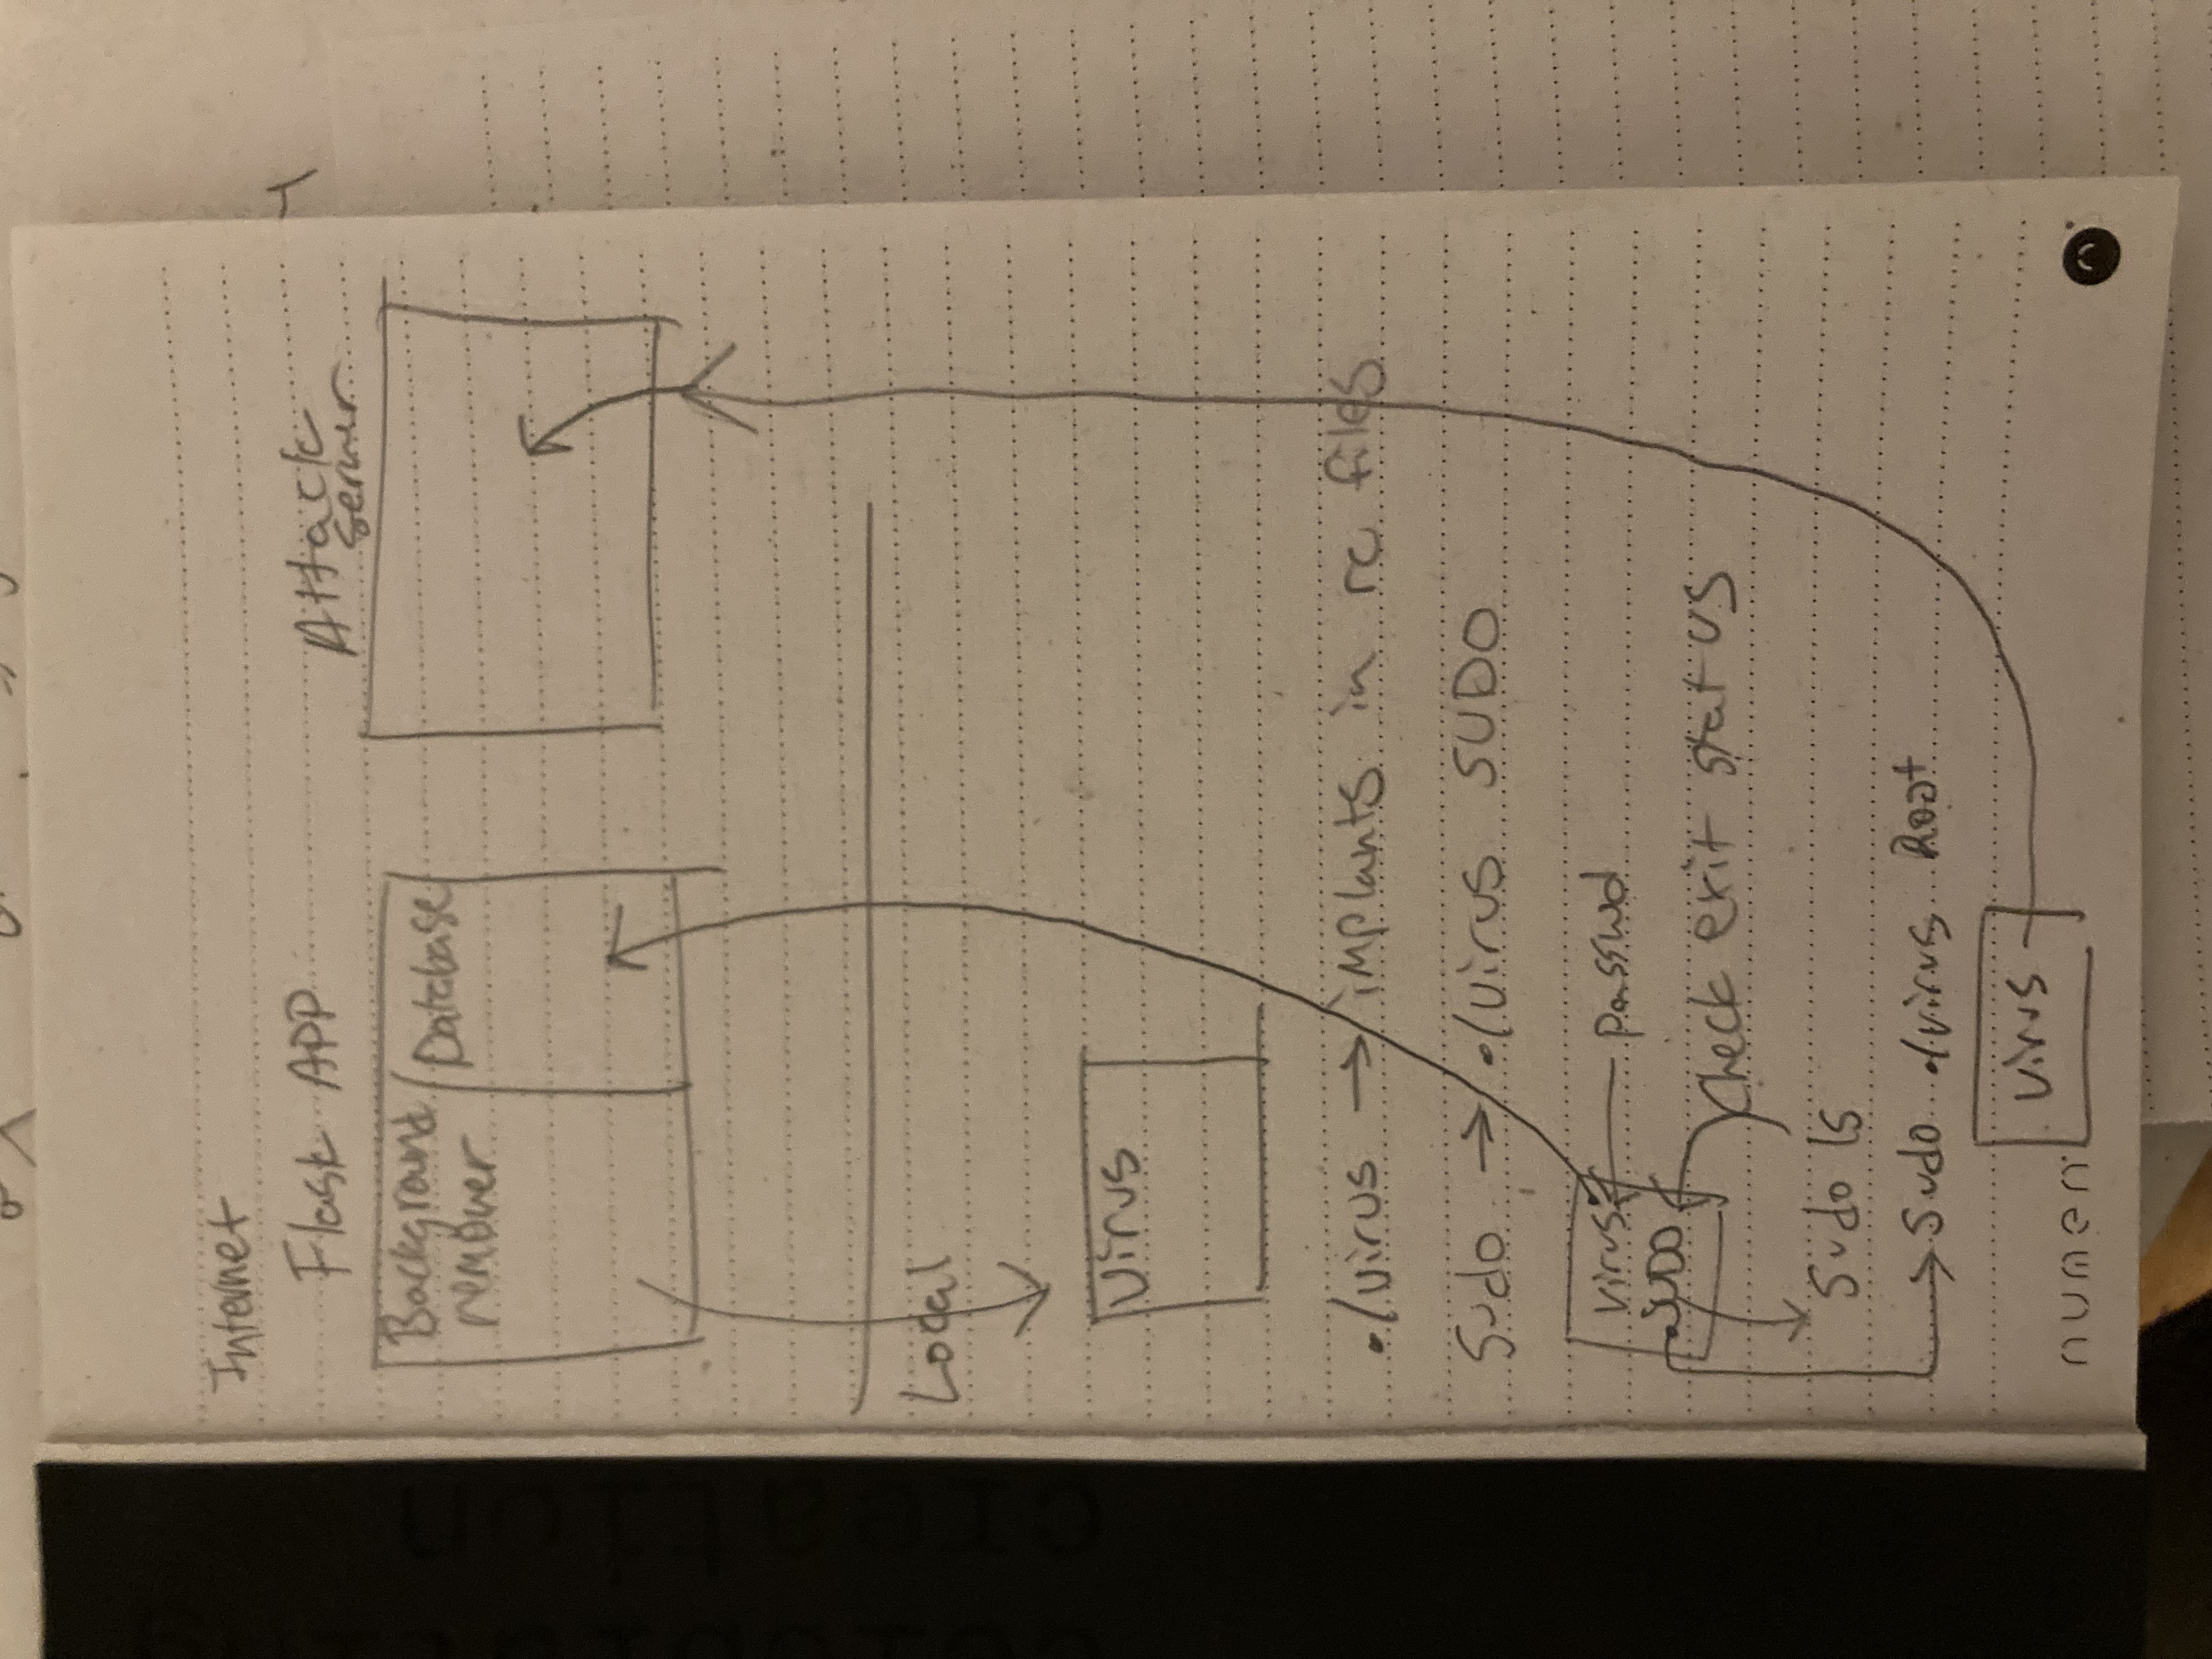 Internet
Flask APP
Attack
server
Background
remover
Database
Local
Virus
./virus → implants in rc files
Sudo → ./virus SUDO
virus
SUDO
passwd
Check exit status
Sudo ls
Sudo ./virus Root
Virus
numen